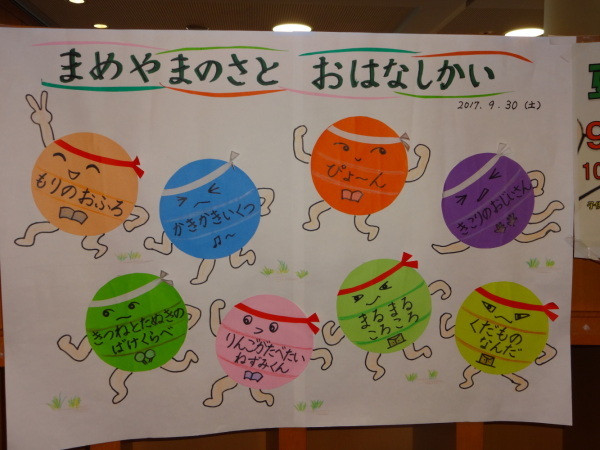 まめやまのさと おはなしかい
2017. 9. 30 (土)
もりのおふろ
かきかきいくつ
ぴょ〜ん
きこりのおじいさん
きつねとたぬきの
ばけくらべ
りんごがたべたい
ねずみくん
まるまる
ころころ
くだもの
なんだ
9
10